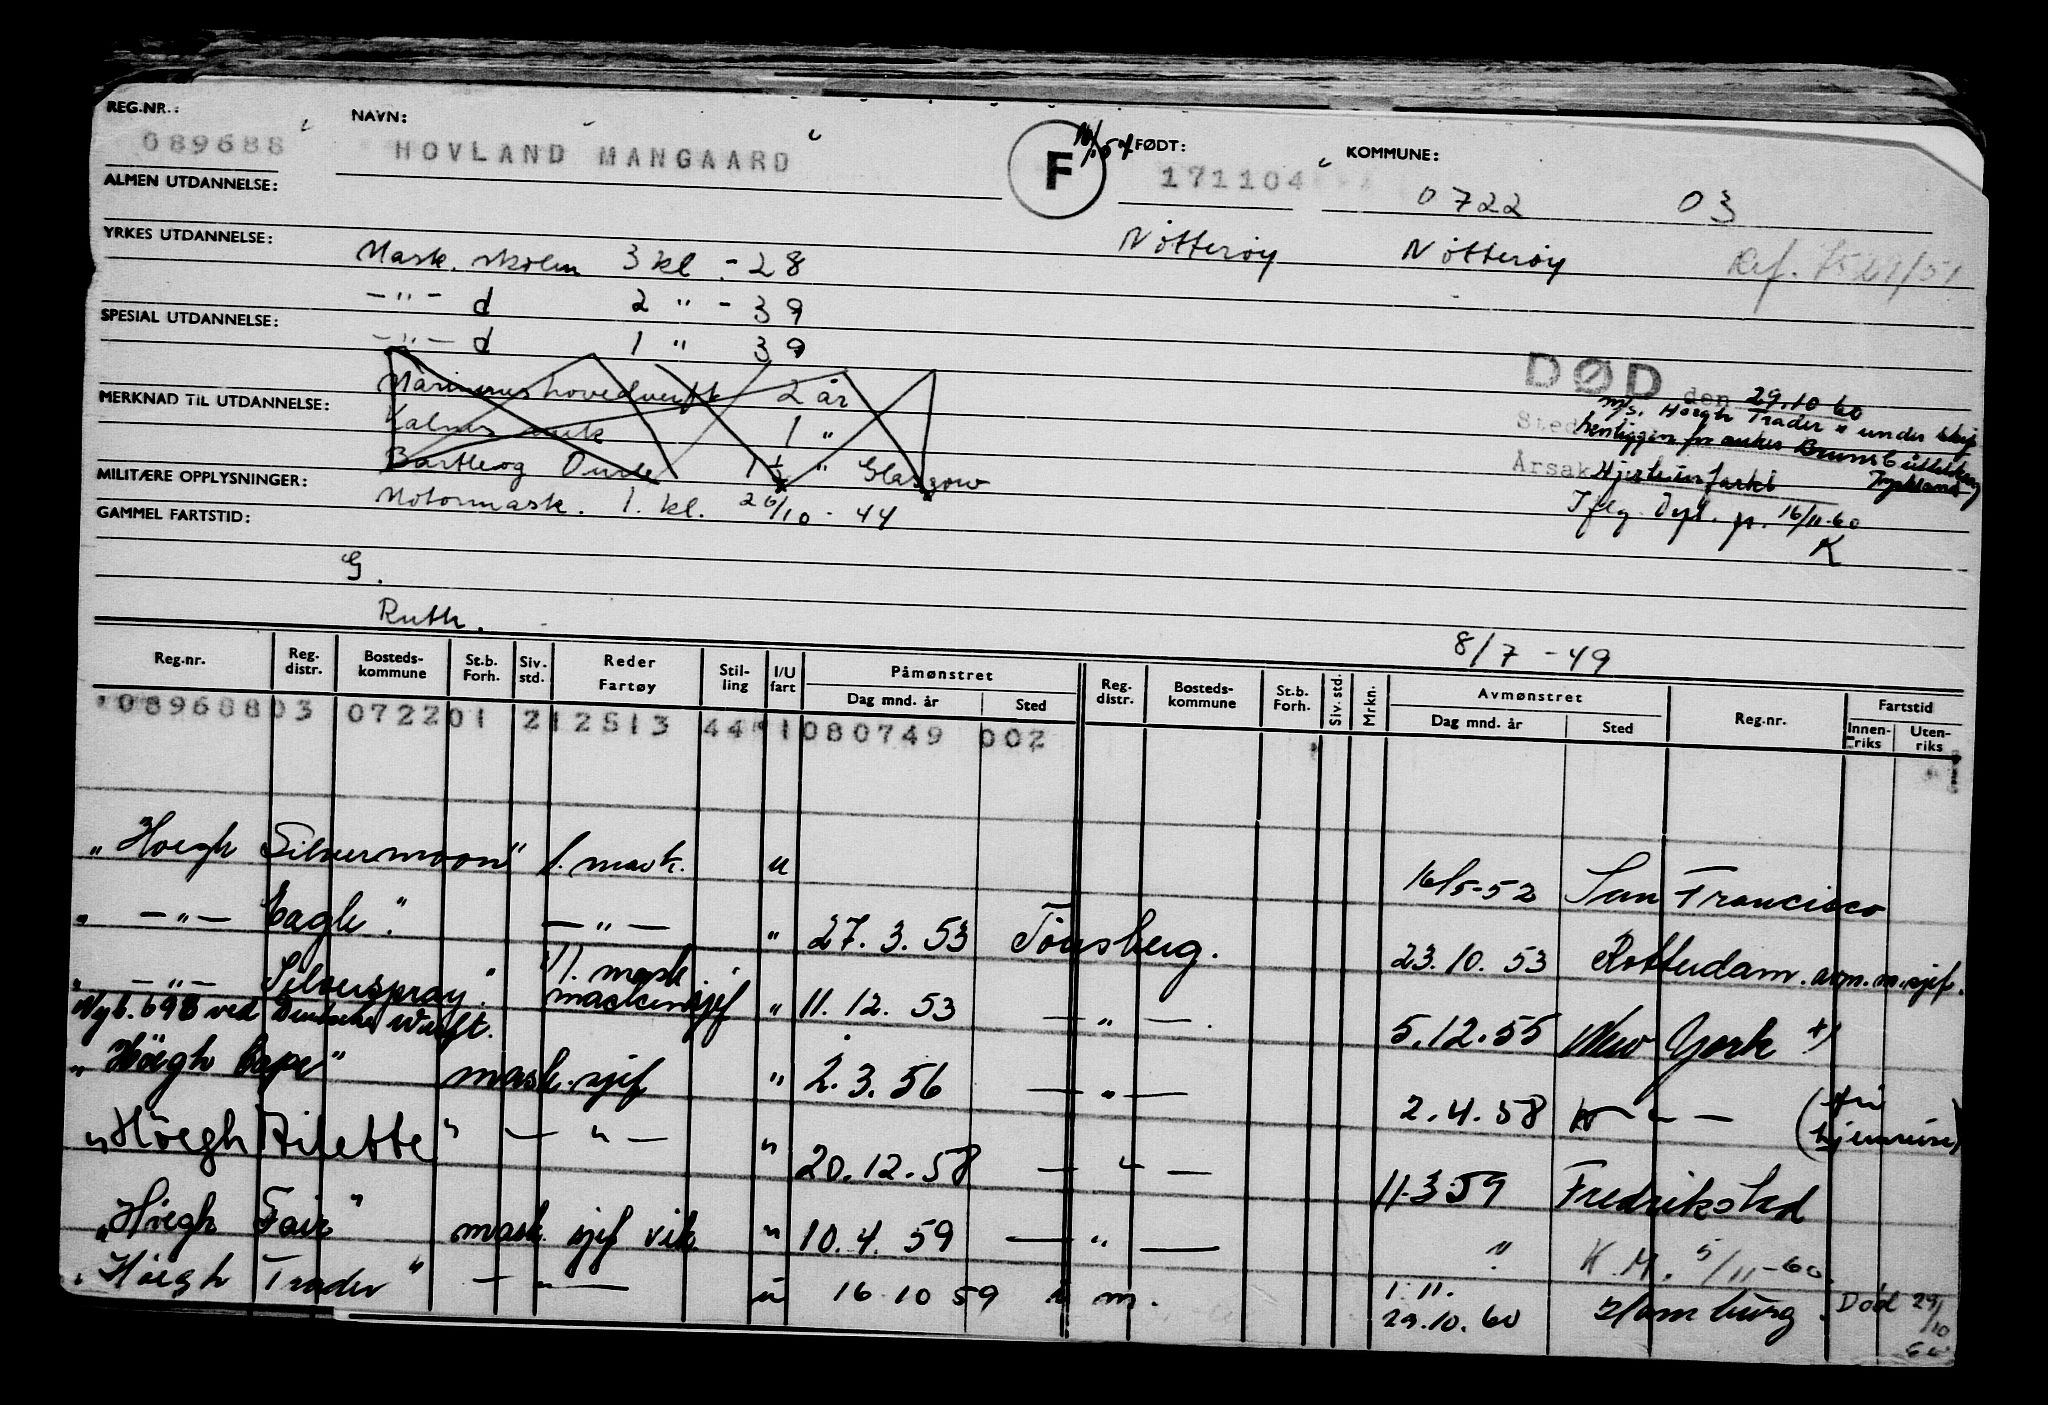 REG.NR.: NAVN: FØDT: KOMMUNE:
089688 HOVLAND MANGAARD F 171104 0722 03
ALMEN UTDANNELSE:
Nötteröy Nötteröy Ref.
YRKES UTDANNELSE: Mask. skolen 3 kl. - 28
-"- d 2 " - 39
SPESIAL UTDANNELSE: -"- d 1 " 39
DØD den 29.10 60
2 år
m/s. Hoegh Trader" under skip
MERKNAD TIL UTDANNELSE: 1 "
Sted
1½ " Glasgow
Årsak Hjerteinfarkt Tyskland
MILITÆRE OPPLYSNINGER: Motormask. 1. kl. 26/10 - 44
Iflg. Dpl. p. 16/11-60
K
GAMMEL FARTSTID:
G.
Ruth.
8/7 - 49
Reg.nr. Reg. distr. Bosteds- kommune St.b. Forh. Siv. std. Reder Fartøy Stil- ling I/U fart Påmønstret Dag mnd. år Sted Reg. distr. Bosteds- kommune St.b. Forh. Siv. std. Mrkn. Avmønstret Dag mnd. år Sted Reg.nr. Fartstid Innen- riks Uten- riks
08968803 072201 212513 44 1 080749 002
"Hoegh Silvermoon" 1. mask. u 16/5-52 San Francisco
" -"- Eagle" -"- " 27. 3. 53 Tönsberg. 23. 10. 53 Rotterdam. avm. m.sjef.
" -"- Silverspray" 1. mask maskinsjef " 11. 12. 53 -"-. 5. 12. 55 New York *)
Nyb. 698 ved Deutsche Werft.
"Höegh Cape" mask. sjef " 2. 3. 56 -"- 2. 4. 58 -"-
"Höegh Arlette" -"- " 20. 12. 58 -"- 11-3 59 Fredrikstad
"Höegh Fair" mask. sjef vik. " 10. 4. 59 -"- " K. M. 5/11-60.
"Höegh Trader" -"- u 16 10 59 m. 1. 11.
29. 10. 60 Hamburg. Død 29/10 60